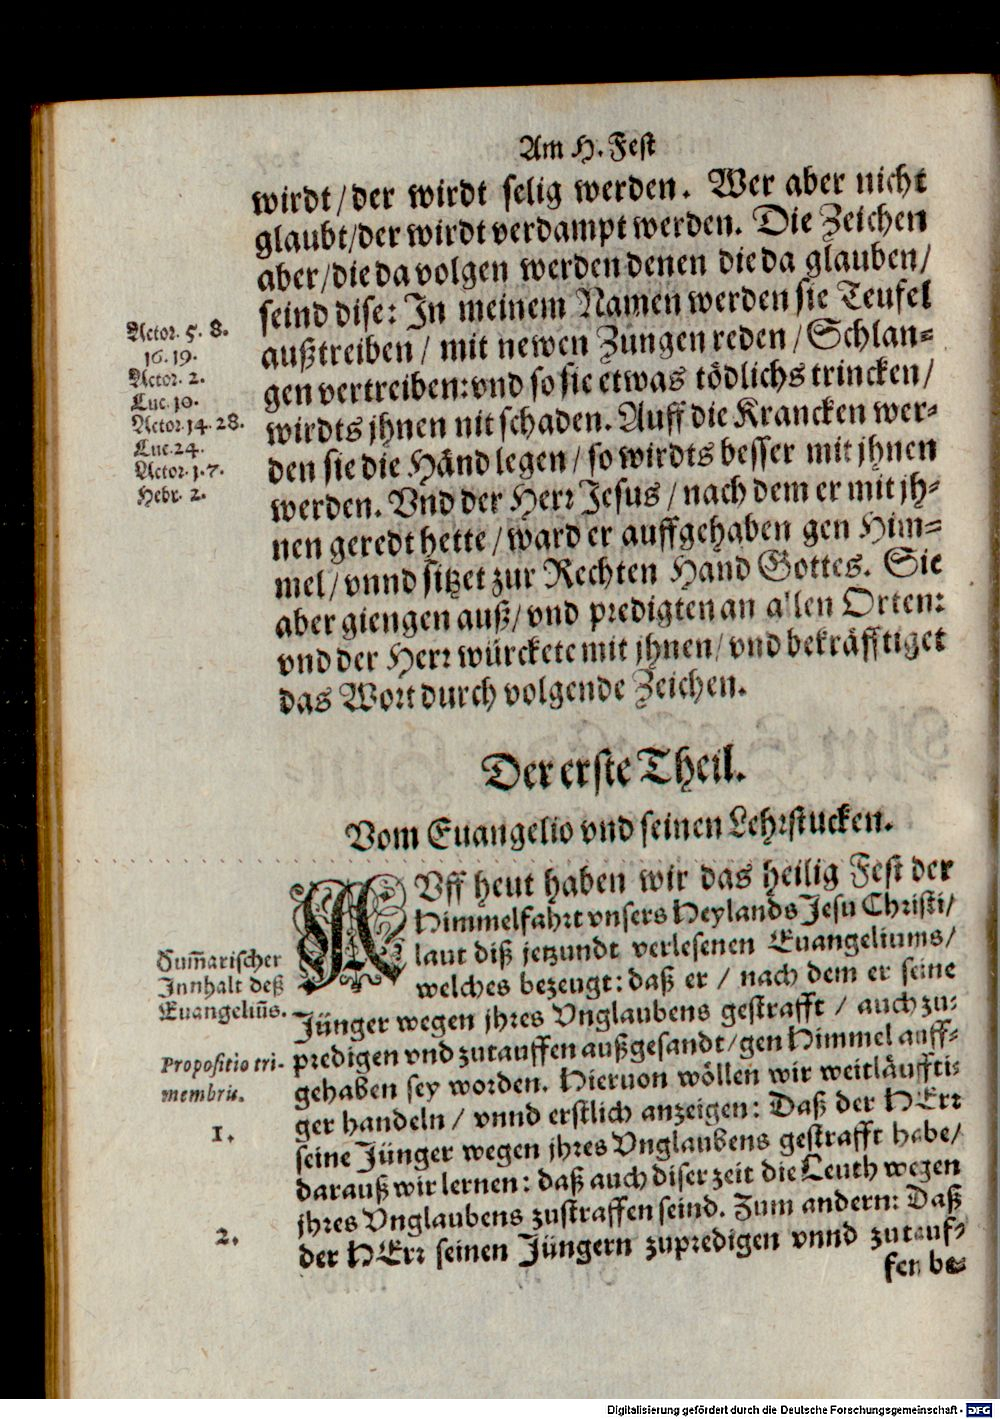 Am H. Fest
wirdt / der wirdt selig werden. Wer aber nicht
glaubt / der wirdt verdampt werden. Die Zeichen
aber / die da volgen werden denen die da glauben /
seind dise: In meinem Namen werden sie Teufel
außtreiben / mit newen Zungen reden / Schlan⸗
gen vertreiben: vnd so sie etwas tödlichs trincken /
wirdts jhnen nit schaden. Auff die Krancken wer⸗
den sie die Händ legen / so wirdts besser mit jhnen
werden. Vnd der Herr Jesus / nach dem er mit jh⸗
nen geredt hette / ward er auffgehaben gen Him⸗
mel / vnnd sitzet zur Rechten Hand Gottes. Sie
aber giengen auß / vnd predigten an allen Orten:
vnd der Herr würckete mit jhnen / vnd bekräfftiget
das Wort durch volgende Zeichen.
Actor. 5. 8.
16. 19.
Actor. 2.
Luc. 10.
Actor. 14. 28.
Luc. 24.
Actor. 1. 7.
Hebr. 2.
Der erste Theil.
Vom Euangelio vnd seinen Lehrstucken.
AVff heut haben wir das heilig Fest der
Himmelfahrt vnsers Heylands Jesu Christi /
laut diß jetzundt verlesenen Euangeliums /
welches bezeugt: daß er / nach dem er seine
Jünger wegen jhres Vnglaubens gestrafft / auch zu⸗
predigen vnd zutauffen außgesandt / gen Himmel auff⸗
gehaben sey worden. Hieruon wöllen wir weitläuffti⸗
ger handeln / vnnd erstlich anzeigen: Daß der HErr
seine Jünger wegen jhres Vnglaubens gestrafft habe /
darauß wir lernen: daß auch diser zeit die Leuth wegen
jhres Vnglaubens zustraffen seind. Zum andern: Daß
der HErr seinen Jüngern zupredigen vnnd zutauf⸗
fen be⸗
Sum̃arischer
Innhalt deß
Euangeliũs.
Propositio tri-
membris.
1.
2.
Digitalisierung gefördert durch die Deutsche Forschungsgemeinschaft - DFG